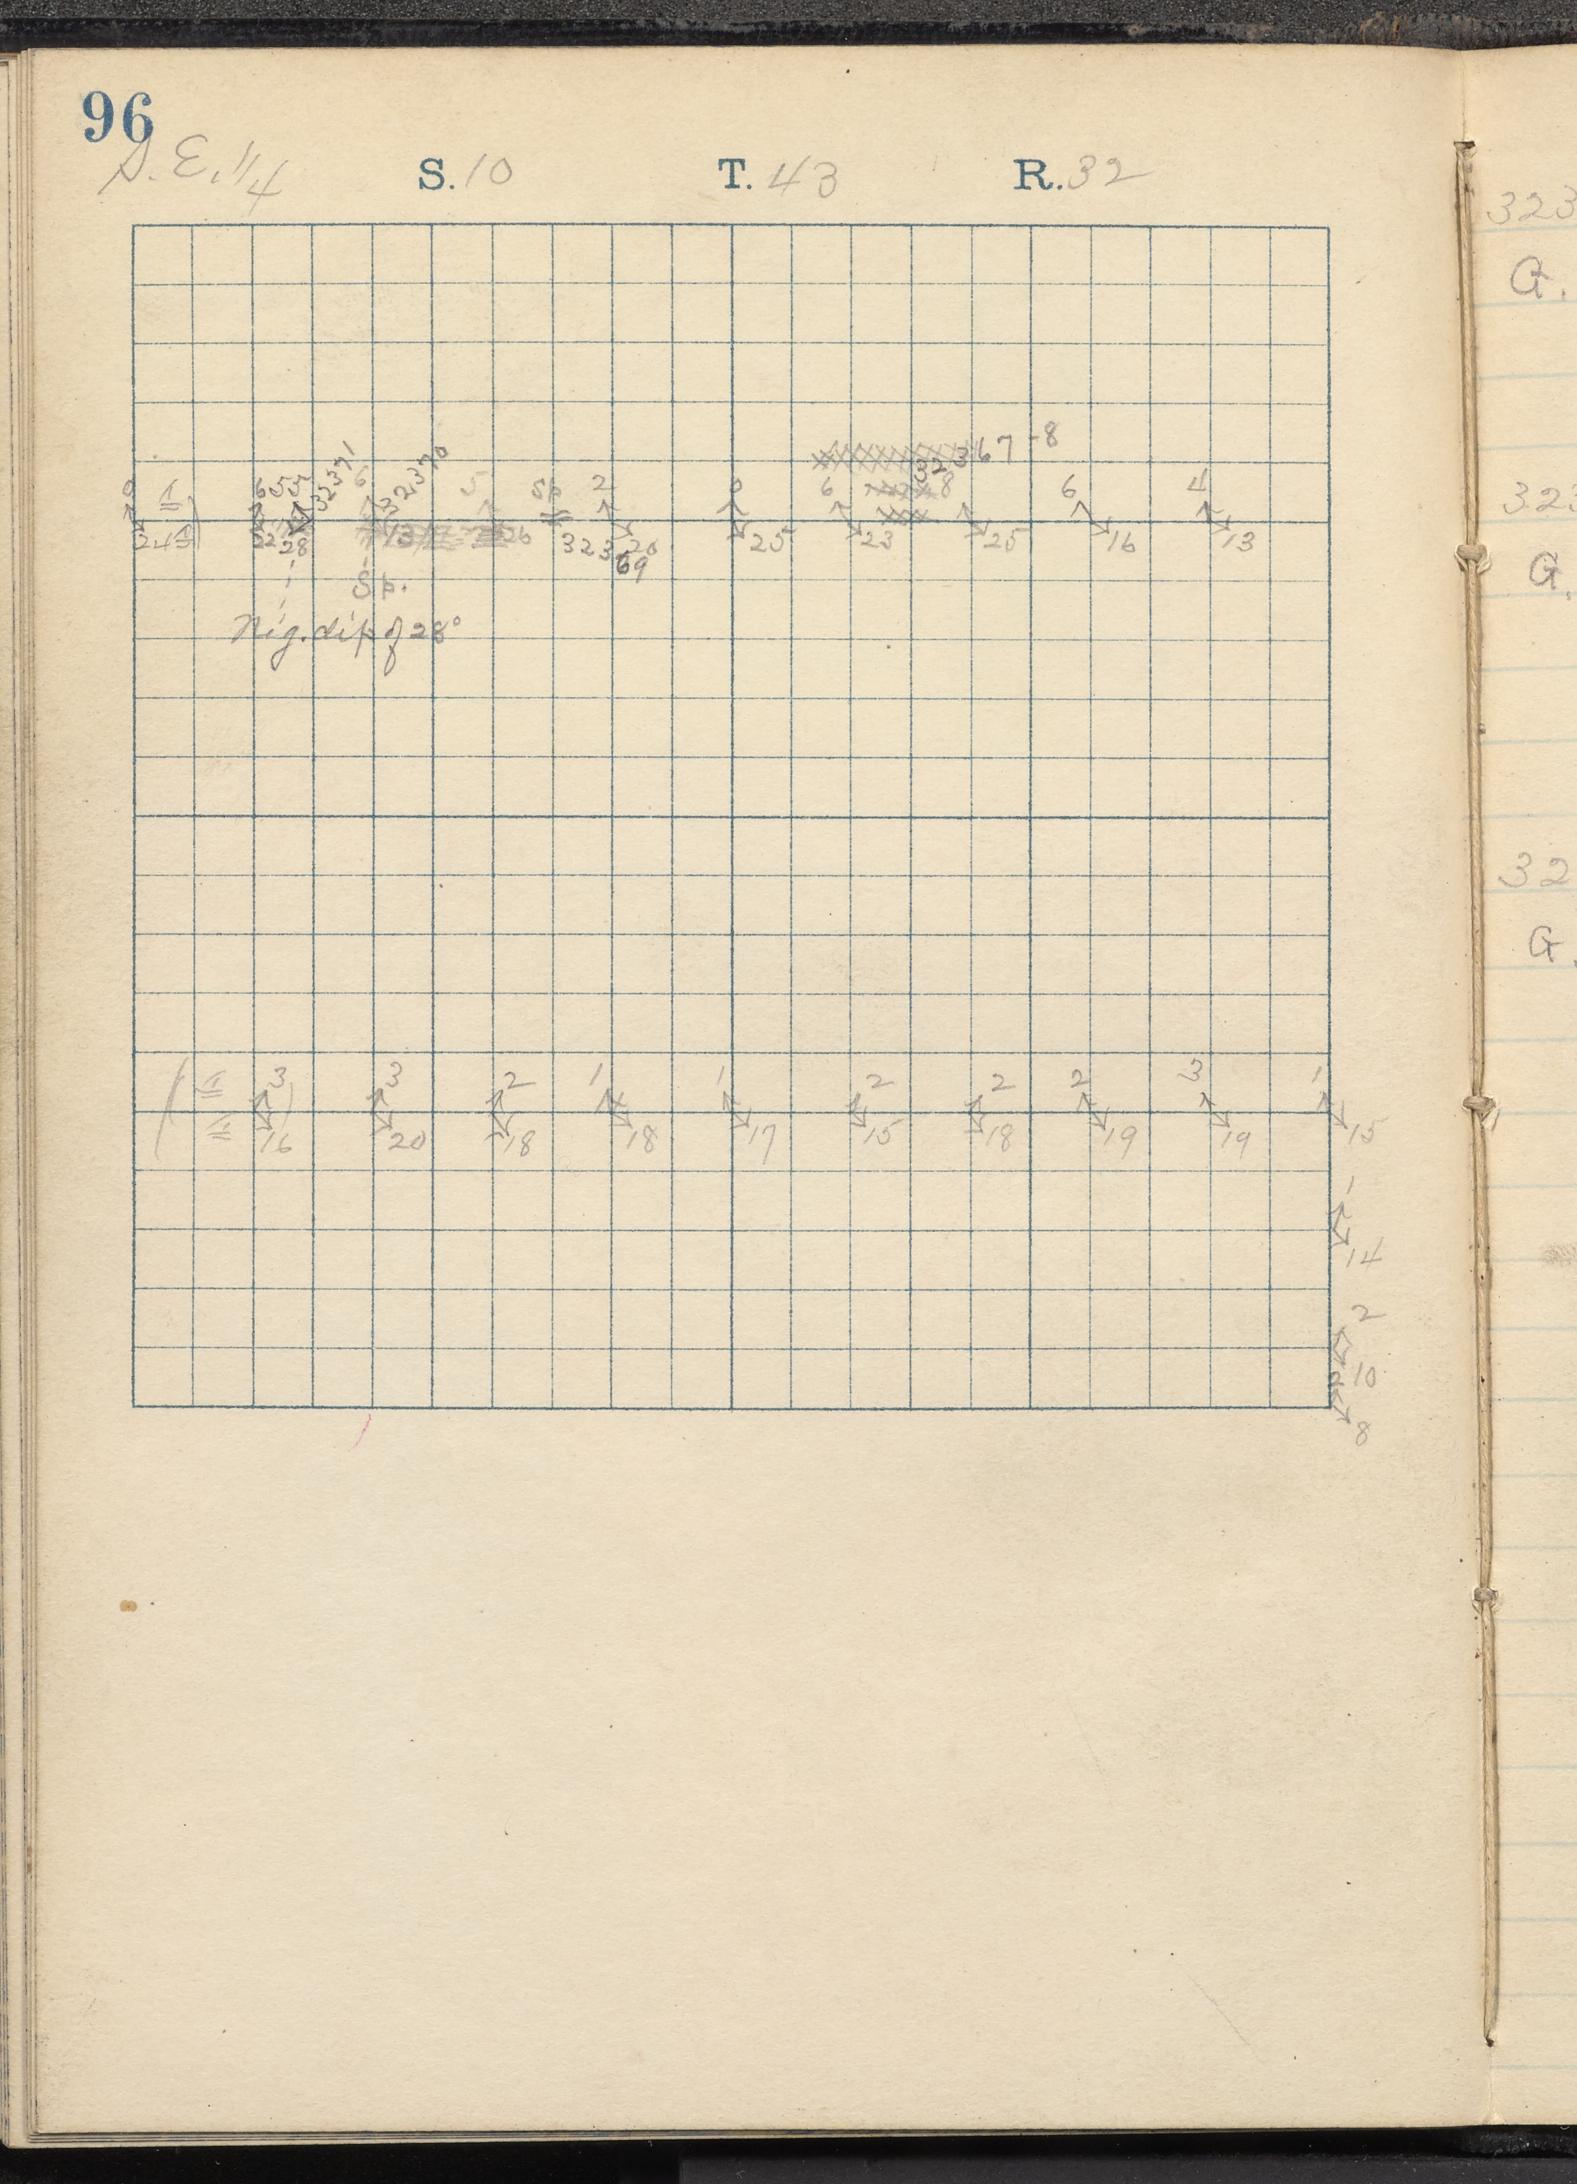 96
S.E. 1/4 S. 10 T. 43 R. 32
32367-8
32371 32370
0 6 6 5 Sp 2 0 6 8 6 4
24 22 28 26 32369 20 25 23 25 16 13
Sp.
Nig. dip of 28°
3 3 2 1 1 2 2 2 3 1
16 20 18 18 17 15 18 19 19 15
1
14
2
10
8
323
G.
323
G.
32
G.